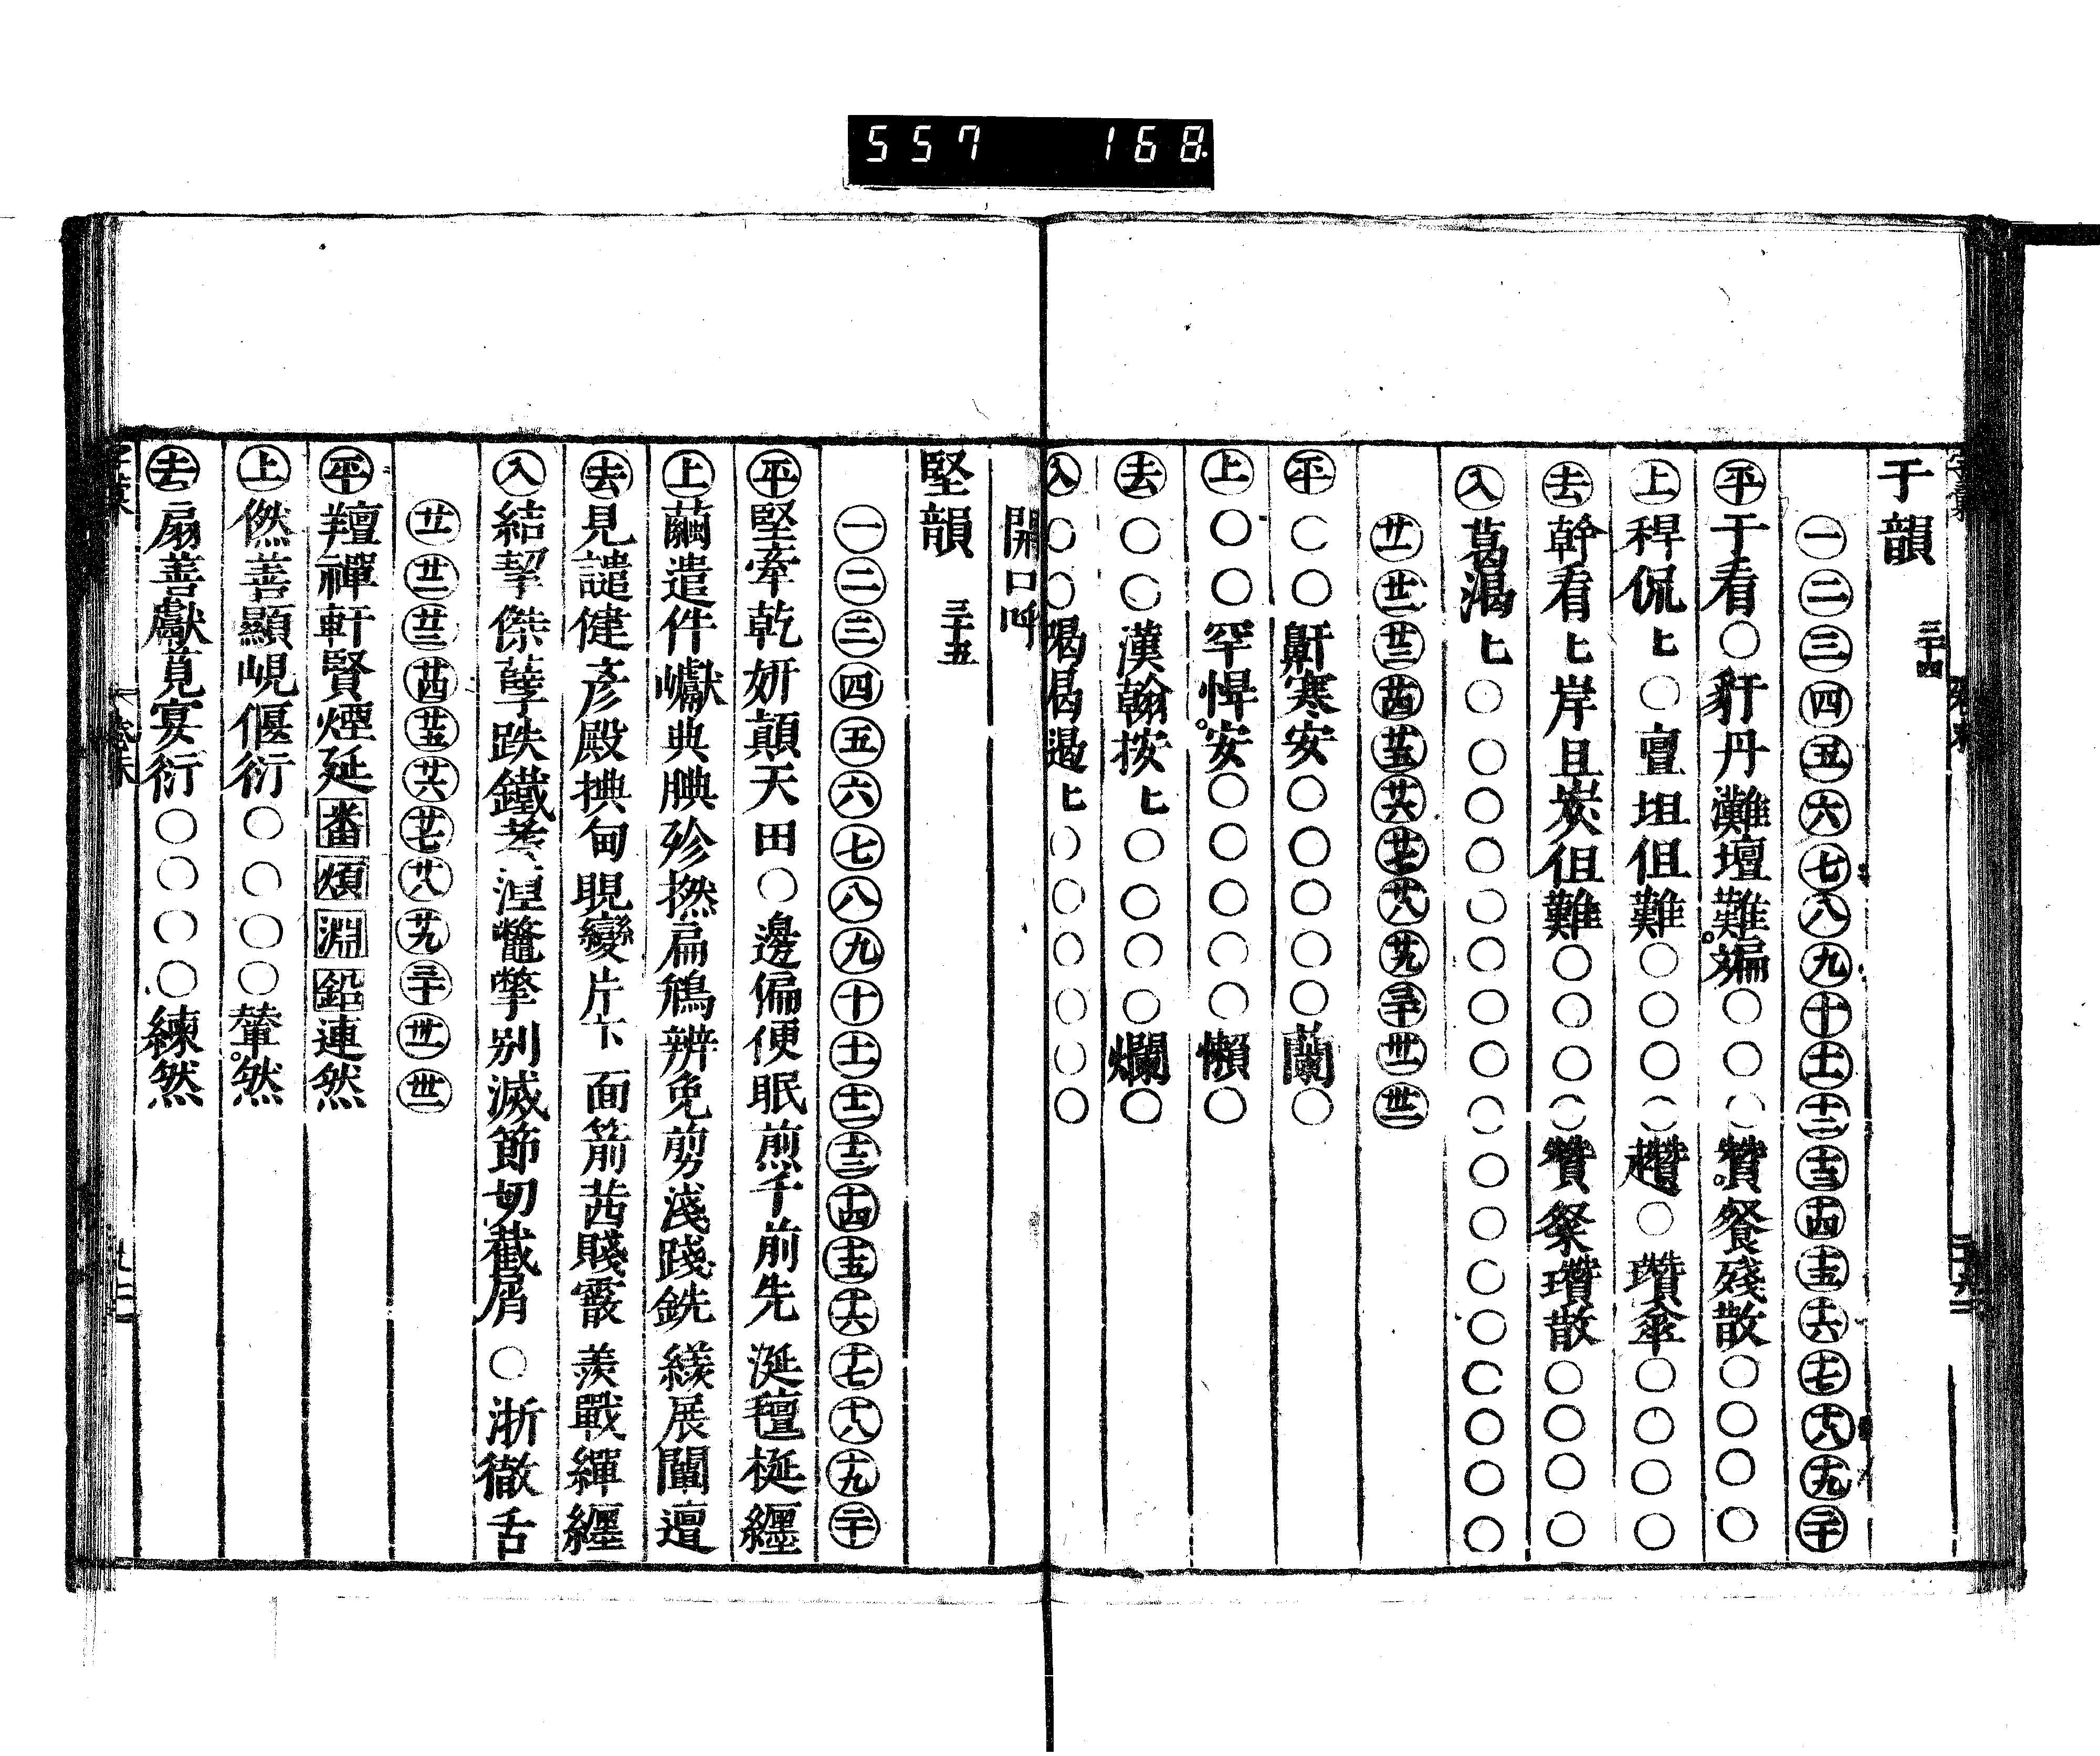 557 168
干韻 三十四
一二三四五六七八九十十一十二十三十四十五十六十七十八十九二十
平干看○豻丹灘壇難○○○餐殘散○○○○
上稈侃上○亶坦但難○○○趲○瓚傘○○○○
去幹看上岸旦炭但難○○○贊粲瓚散○○○○
入葛渴上○○○○○○○○○○○○○○○○○
廿一廿二廿三廿四廿五廿六廿七廿八廿九三十卅一卅二
平○○鼾寒安○○○○○蘭○
上○○罕悍安○○○○○懶○
去○○漢翰按上○○○○爛○
入○○喝曷遏上○○○○○○
開口呼
堅韻 三十五
一二三四五六七八九十十一十二十三十四十五十六十七十八十九二十
平堅牽乾妍顛天田○邊偏便眠煎千前先涎氊梴纏
上繭遣件巘典腆殄撚扁鴘辨免剪淺踐銑綫展闡邅
去見譴健彦殿㙉甸晛變片卞面箭茜賤霰羨戰繟纏
入結挈傑孽跌鐵耊涅鼈擎别滅節切截屑○浙徹舌
廿一廿二廿三廿四廿五廿六廿七廿八廿九三十卅一卅二
平羶禪軒賢煙延番煩淵鉛連然
上㒄善顯峴偃衍○○○○輦然
去扇善獻莧宴衍○○○○練然